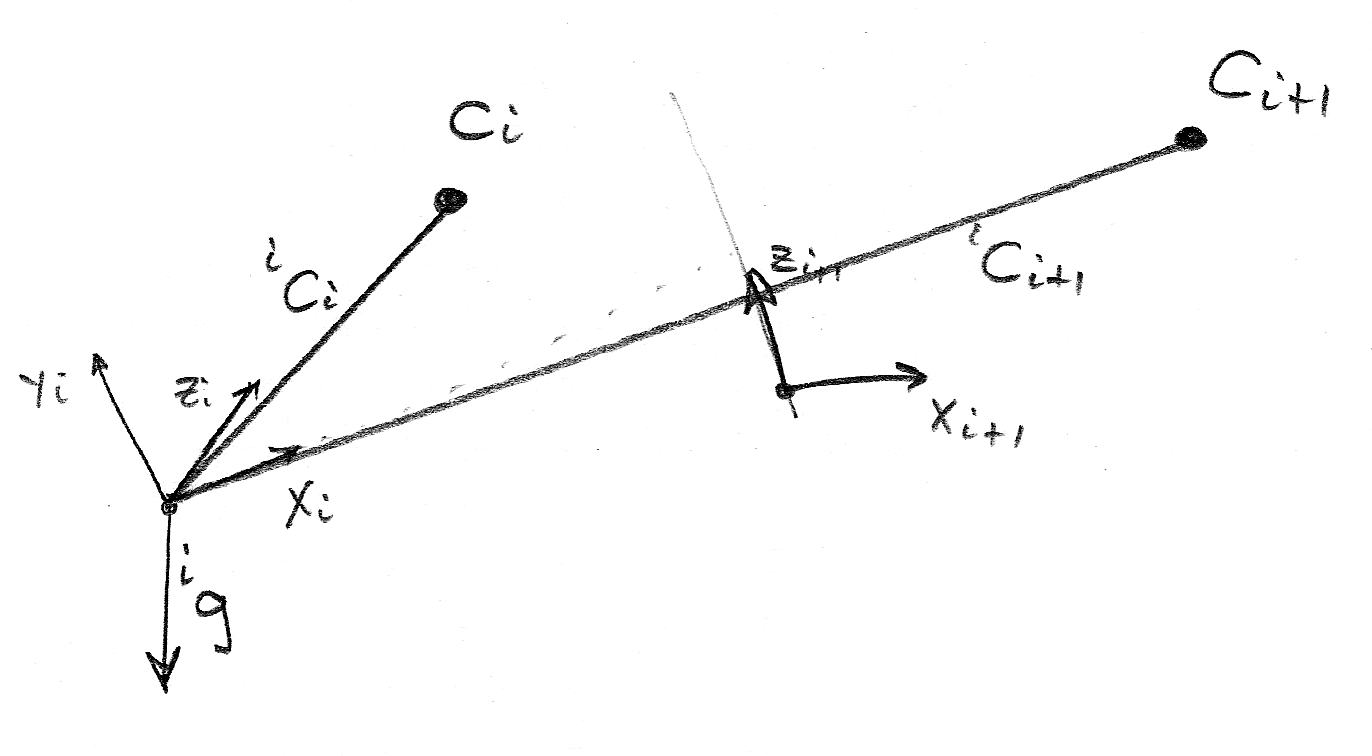 Ci
Ci+1
iCi
Zi+1
iCi+1
Yi
Zi
Xi
Xi+1
i
g